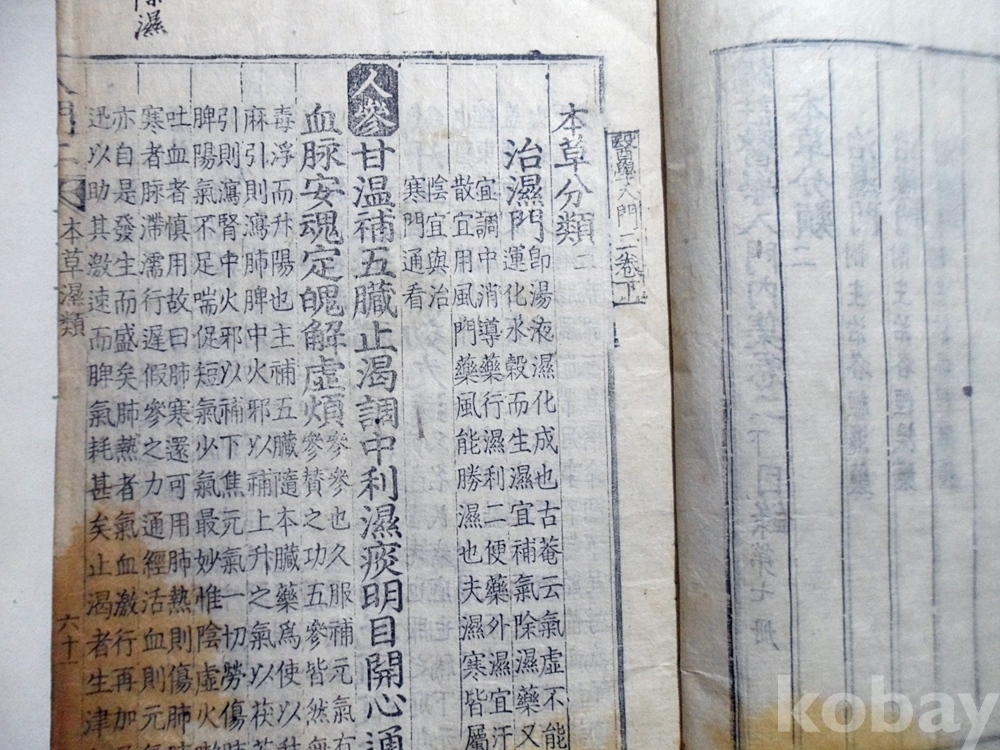 本草分類
治濕門
醫學入門二卷上
本草分類二
治濕門即湯液濕化成也古菴云氣虛不能
運化水穀而生濕宜補氣除濕藥又
宜調中消導藥行濕利二便藥外濕宜汗
散宜用風門藥風能勝濕也夫濕寒皆屬
陰宜與治
寒門通看
人參甘温補五臟止渴調中利濕痰明目開心通
血脉安魂定魄解虛煩參參也久服補元氣有
參贊之功五參皆然無
毒浮而升陽也主補五臟隨本臟藥爲使以升
麻引則瀉肺脾中火邪以補上升之氣以茯
引則瀉腎中火邪以補下焦元氣一切勞傷肺
脾陽氣不足喘促短氣少氣最妙惟陰虛火
吐血者慎用故曰肺寒還可用肺熱則傷肺
寒者脉滯濡行遲假參之力通經活血則元
亦自是發生而盛矣肺熱者氣血激行再加
迅以助其激速而脾氣耗甚矣止渴者生津
入門二 本草濕類 六十一
除濕
kobay